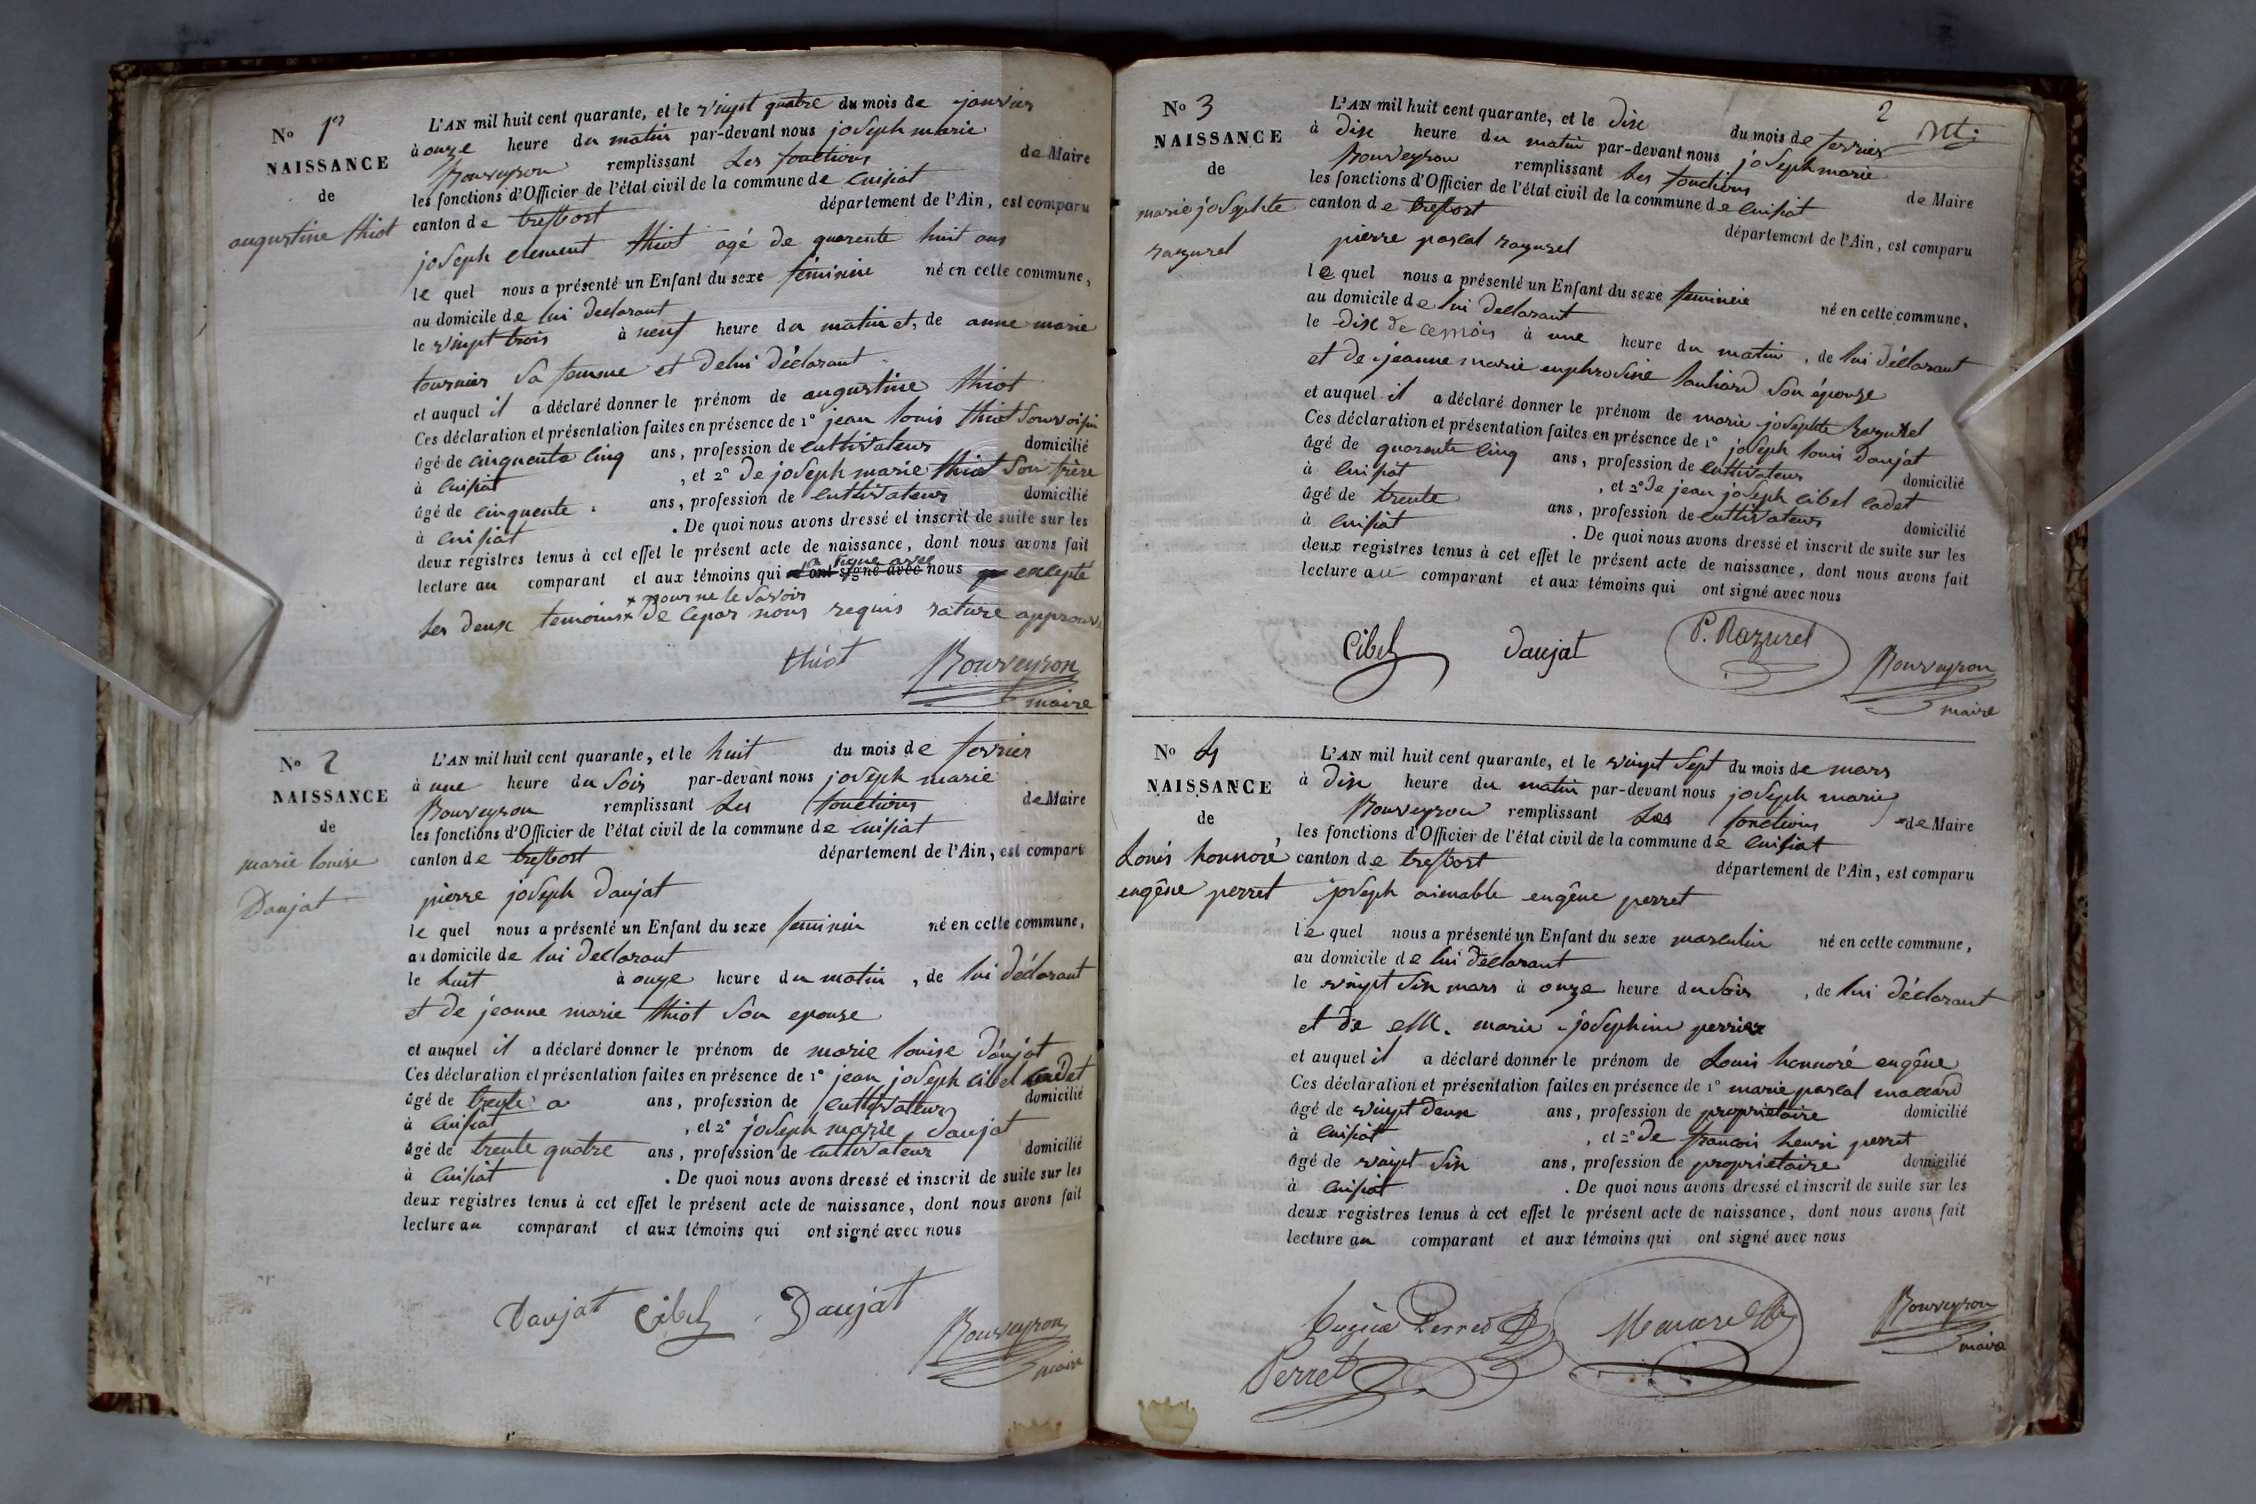 No 1er
NAISSANCE
de
augustine thiot
L'AN mil huit cent quarante, et le vingt quatre du mois de janvier
à onze heure du matin par-devant nous joseph marie
Bouveyron remplissant les fonctions de Maire
les fonctions d'Officier de l'état civil de la commune de Cuisiat
canton de treffort département de l'Ain, est comparu
joseph clement thiot agé de quarente huit ans
le quel nous a présenté un Enfant du sexe féminin né en cette commune,
au domicile de lui déclarant
le vingt trois à neuf heure du matin et, de anne marie
tournier sa femme et de lui déclarant
et auquel il a déclaré donner le prénom de augustine thiot
Ces déclaration et présentation faites en présence de 1° jean louis thiot son voisin
âgé de cinquente cinq ans, profession de cultivateur domicilié
à Cuisiat , et 2° de joseph marie thiot son frère
âgé de cinquente ans, profession de cultivateur domicilié
à Cuisiat . De quoi nous avons dressé et inscrit de suite sur les
deux registres tenus à cet effet le présent acte de naissance, dont nous avons fait
lecture au comparant et aux témoins qui ont signé avec a signé avec nous excepté
x pour ne le savoir
les deux temoins x de ce par nous requis rature approuvé
thiot Bouveyron
maire
No 2
NAISSANCE
de
marie louise
Daujat
L'AN mil huit cent quarante, et le huit du mois de fevrier
à une heure du soir par-devant nous joseph marie
Bouveyron remplissant les fonctions de Maire
les fonctions d'Officier de l'état civil de la commune de Cuisiat
canton de treffort département de l'Ain, est comparu
pierre joseph daujat
le quel nous a présenté un Enfant du sexe feminin né en cette commune,
au domicile de lui déclarant
le huit à onze heure du matin , de lui déclarant
et de jeanne marie thiot son epouse
et auquel il a déclaré donner le prénom de marie louise daujat
Ces déclaration et présentation faites en présence de 1° jean joseph cibel cadet
âgé de trente ans, profession de cultivateur domicilié
à Cuisiat , et 2° joseph marie daujat
âgé de trente quatre ans, profession de cultivateur domicilié
à Cuisiat . De quoi nous avons dressé et inscrit de suite sur les
deux registres tenus à cet effet le présent acte de naissance, dont nous avons fait
lecture au comparant et aux témoins qui ont signé avec nous
Daujat Cibel Daujat
Bouveyron
maire
2
No 3
NAISSANCE
de
marie josephte
razurel
L'AN mil huit cent quarante, et le dix du mois de fevrier
à dix heure du matin par-devant nous joseph marie
Bouveyron remplissant les fonctions de Maire
les fonctions d'Officier de l'état civil de la commune de Cuisiat
canton de treffort département de l'Ain, est comparu
pierre pascal razurel
le quel nous a présenté un Enfant du sexe feminin né en cette commune,
au domicile de lui declarant
le dix de ce mois à une heure du matin , de lui déclarant
et de jeanne marie euphrosine son épouse
et auquel il a déclaré donner le prénom de marie josephte Razurel
Ces déclaration et présentation faites en présence de 1° joseph louis daujat
âgé de quarente cinq ans, profession de cultivateur domicilié
à Cuisiat , et 2° de jean joseph cibel cadet
âgé de trente ans, profession de cultivateur domicilié
à Cuisiat . De quoi nous avons dressé et inscrit de suite sur les
deux registres tenus à cet effet le présent acte de naissance, dont nous avons fait
lecture au comparant et aux témoins qui ont signé avec nous
Cibel daujat P. Razurel
Bouveyron
maire
No 4
NAISSANCE
de
Louis honnoré
eugêne perret
L'AN mil huit cent quarante, et le vingt sept du mois de mars
à dix heure du matin par-devant nous joseph marie
Bouveyron remplissant les fonctions de Maire
les fonctions d'Officier de l'état civil de la commune de Cuisiat
canton de treffort département de l'Ain, est comparu
joseph aimable eugêne perret
le quel nous a présenté un Enfant du sexe masculin né en cette commune,
au domicile de lui déclarant
le vingt six mars à onze heure du soir , de lui déclarant
et de marie josephine perrier
et auquel il a déclaré donner le prénom de Louis honnoré eugêne
Ces déclaration et présentation faites en présence de 1° marie pascal
âgé de vingt deux ans, profession de propriétaire domicilié
à Cuisiat , et 2° de françois henri perret
âgé de vingt six ans, profession de propriétaire domicilié
à Cuisiat . De quoi nous avons dressé et inscrit de suite sur les
deux registres tenus à cet effet le présent acte de naissance, dont nous avons fait
lecture au comparant et aux témoins qui ont signé avec nous
Eugène Perret
Bouveyron
maire
Perret